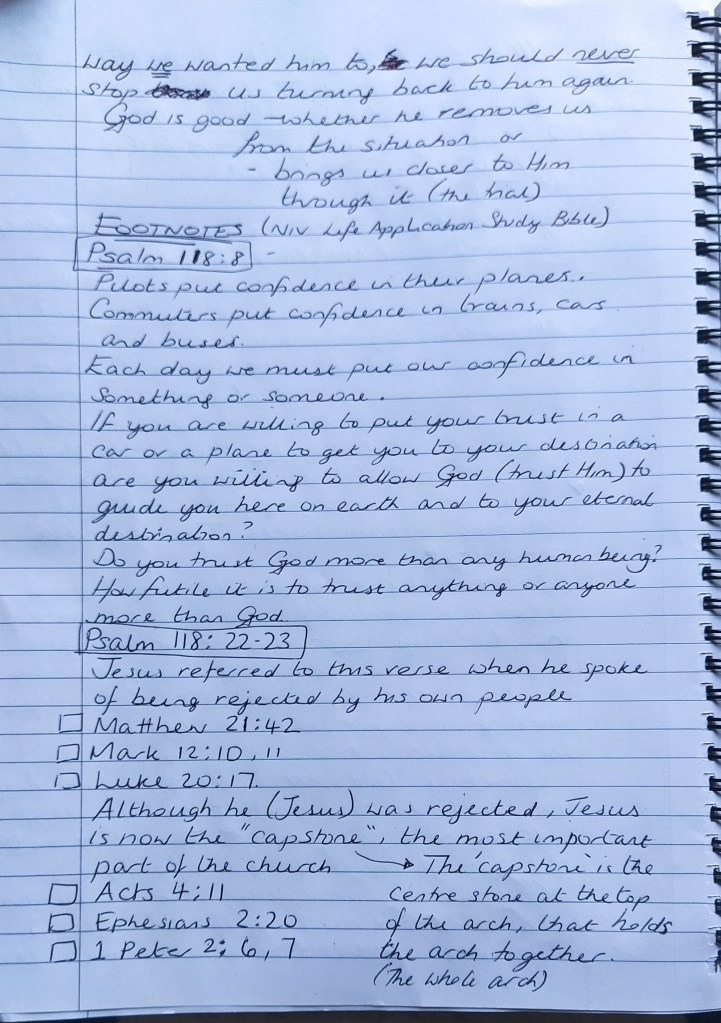 way we wanted him to, we should never
stop us turning back to him again.
God is good - whether he removes us
from the situation or
- brings us closer to Him
through it (the trial)
FOOTNOTES (NIV Life Application Study Bible)
Psalm 118:8 -
Pilots put confidence in their planes.
Commuters put confidence in trains, cars
and buses.
Each day we must put our confidence in
something or someone.
If you are willing to put your trust in a
car or a plane to get you to your destination
are you willing to allow God (trust Him) to
guide you here on earth and to your eternal
destination?
Do you trust God more than any human being?
How futile it is to trust anything or anyone
more than God.
Psalm 118: 22-23
Jesus referred to this verse when he spoke
of being rejected by his own people
Matthew 21:42
Mark 12:10, 11
Luke 20:17.
Although he (Jesus) was rejected, Jesus
is now the "capstone", the most important
part of the church
Acts 4:11
Ephesians 2:20
1 Peter 2; 6, 7
The 'capstone' is the
centre stone at the top
of the arch, that holds
the arch together.
(The whole arch)